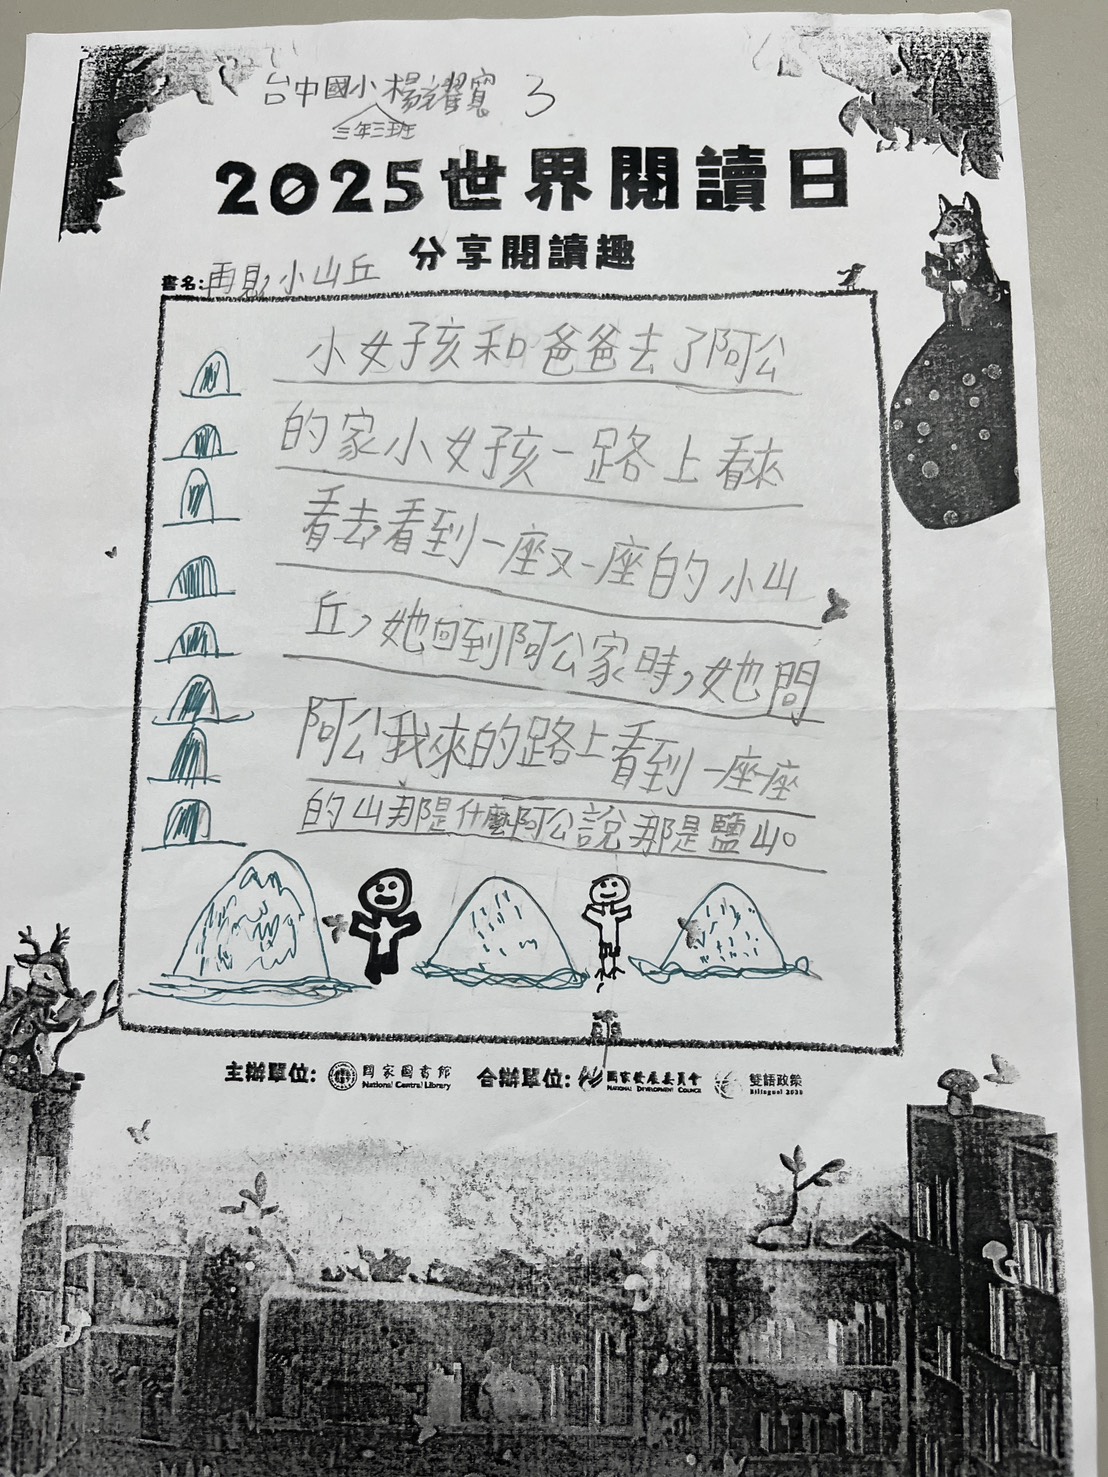 台中國小楊耀寬 3
三年三班
2025世界閱讀日
分享閱讀趣
書名:再見,小山丘
小女孩和爸爸去了阿公
的家小女孩一路上看來
看去,看到一座又一座的小山
丘,她回到阿公家時,她問
阿公我來的路上看到一座座
的山那是什麼阿公說那是鹽山。
主辦單位: 國家圖書館 National Central Library 合辦單位: 國家發展委員會 NATIONAL DEVELOPMENT COUNCIL 雙語政策 Bilingual 2030